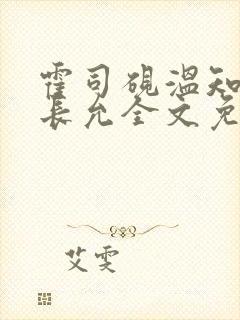 霍司砚温知
长允全文免
艾雯